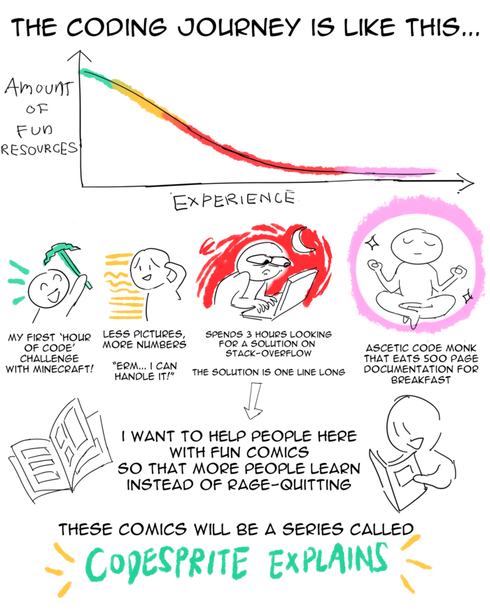 THE CODING JOURNEY IS LIKE THIS...
AMOUNT
OF
FUN
RESOURCES
EXPERIENCE
MY FIRST 'HOUR
OF CODE'
CHALLENGE
WITH MINECRAFT!
LESS PICTURES,
MORE NUMBERS
"ERM... I CAN
HANDLE IT!"
SPENDS 3 HOURS LOOKING
FOR A SOLUTION ON
STACK-OVERFLOW
THE SOLUTION IS ONE LINE LONG
ASCETIC CODE MONK
THAT EATS 500 PAGE
DOCUMENTATION FOR
BREAKFAST
I WANT TO HELP PEOPLE HERE
WITH FUN COMICS
SO THAT MORE PEOPLE LEARN
INSTEAD OF RAGE-QUITTING
THESE COMICS WILL BE A SERIES CALLED
CODESPRITE EXPLAINS